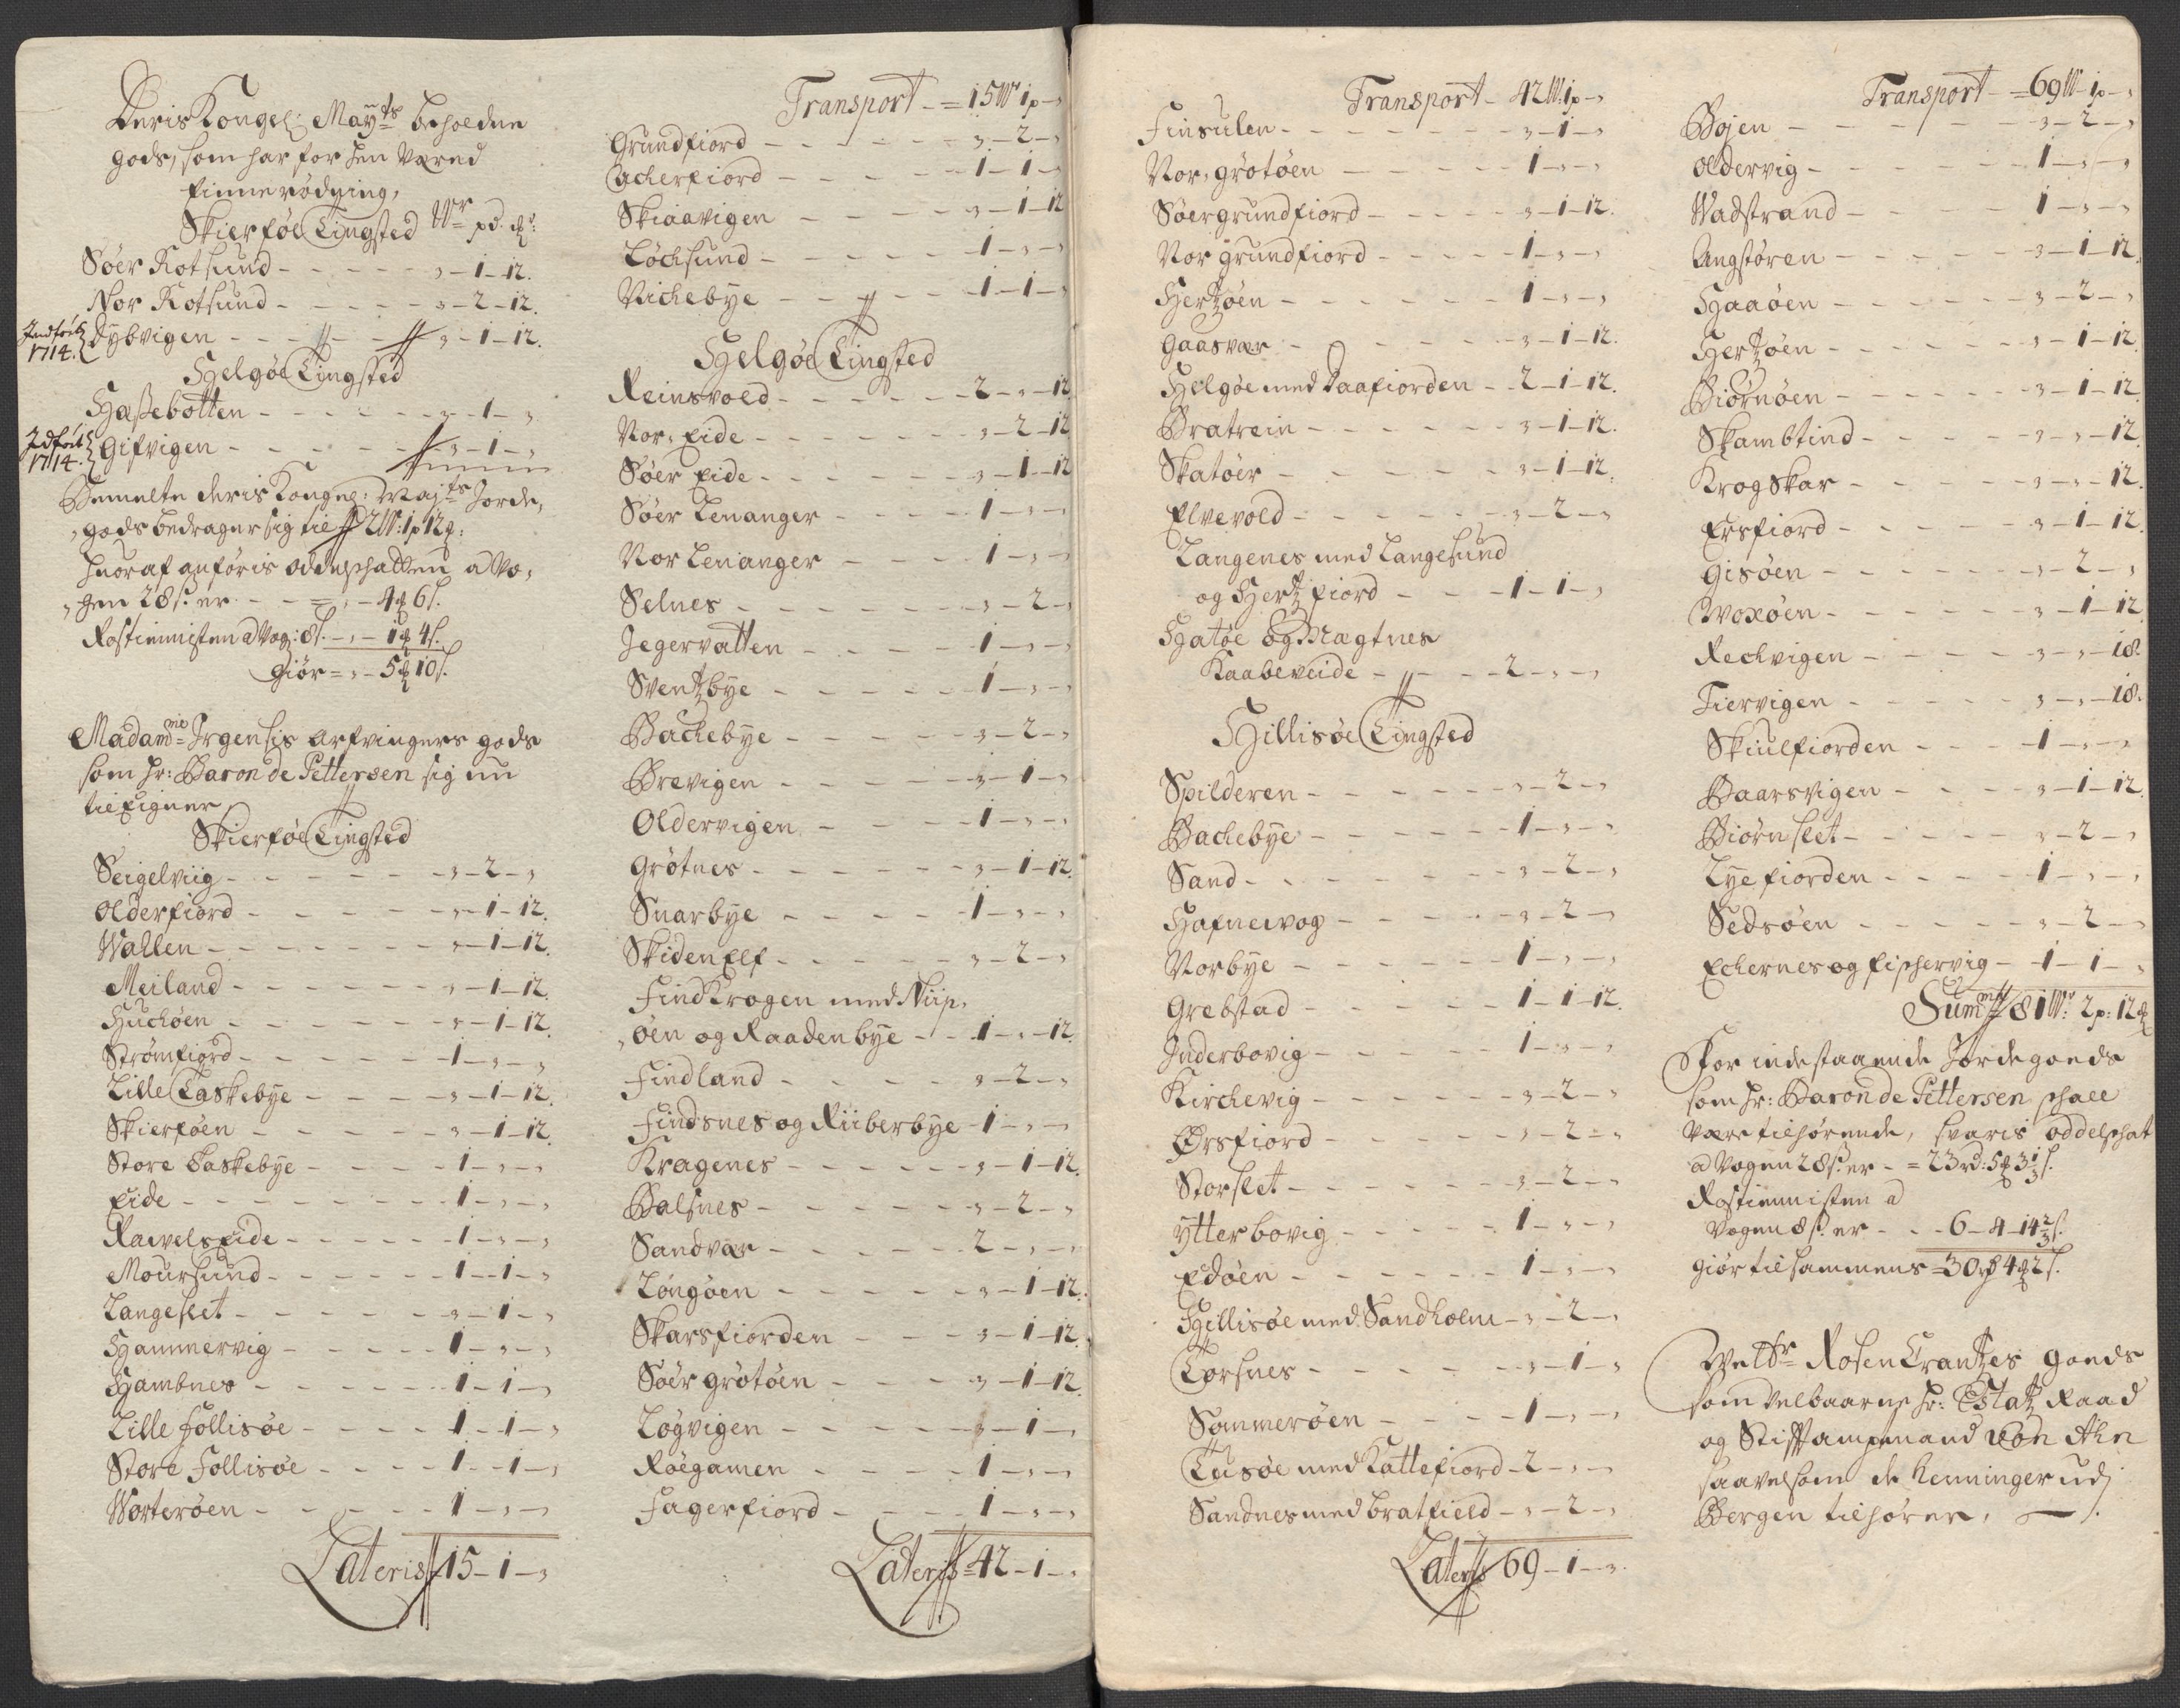 Deris Kongel: Mayts beholdne
gods, som har for hen Væred
finnerødning,
Skierføe Tingsted Wr pd. ℔:
Søer Rotsund - - - - - „ - 1 - 12.
Nor Rotsund - - - - - „ - 2 - 12.
Indført 1714. Dybvigen - - - - - „ - 1 - 12.
Helgøe Tingsted
Hæssebotten - - - - - „ - 1 - „
Idført 1714. Gifvigen - - - - - „ - 1 - „
Bemelte deris Kongel: Majts Jorde,
„gods bedrager sig til 2W: 1p 12℔:
huoraf anføris oddelschatten a Vo,
„gen 28s. er - - = „ - 4 ℔ 6s.
Rostienisten a Vog: 8s. - „ - 1 ℔ 4s.
Giør = „ - 5 ℔ 10s.
Madame Irgensis arfvingers gods
som hr: Baron de Pettersen sig nu
tilEigner
Skierføe Tingsted
Seigelviig - - - - - „ - 2 - „
Olderfiord - - - - - „ - 1 - 12.
Wallen - - - - - „ - 1 - 12.
Meiland - - - - - „ - 1 - 12.
Huchøen - - - - - „ - 1 - 12.
Strømfiord - - - - - 1 - „ - „
Lille Taskebye - - - - „ - 1 - 12.
Skierføen - - - - - „ - 1 - 12.
Store Taskebye - - - - 1 - „ - „
Eide - - - - - 1 - „ - „
Rawelseide - - - - - 1 - „ - „
Moursund - - - - - 1 - 1 - „
Langeslet - - - - - „ - 1 - „
Hammervig - - - - - 1 - „ - „
Hambnes - - - - - 1 - 1 - „
Lille Follisøe - - - - 1 - 1 - „
Store Follisøe - - - - 1 - 1 - „
Worterøen - - - - - 1 - „ - „
Lateris 15 - 1 - „
Transport - = 15W 1p - „
Grundfiord - - - - - „ - 2 - „
Acherfiord - - - - - 1 - 1 - „
Skiaavigen - - - - - „ - 1 - 12
Løchsund - - - - - 1 - „ - „
Vichebye - - - - - 1 - 1 - „
Helgøe Tingsted
Reinsvold - - - - - 2 - „ - 12
Nor, Eide - - - - - „ - 2 - 12
Søer Eide - - - - - „ - 1 - 12
Søer Lenanger - - - - 1 - „ - „
Nor Lenanger - - - - 1 - „ - „
Selnes - - - - - „ - 2 - „
Jegervatten - - - - - 1 - „ - „
Sventzbye - - - - - 1 - „ - „
Bachebye - - - - - „ - 2 - „
Brevigen - - - - - „ - 1 - „
Oldervigen - - - - - 1 - „ - „
Grøtnes - - - - - „ - 1 - 12.
Snarbye - - - - - 1 - „ - „
SkidenElf - - - - - „ - 2 - „
Findkrogen med Niip,
„øen og Raadenbye - - 1 - „ - 12.
Findland - - - - - „ - 2 - „
Findsnes og Riiberbye - 1 - „ - „
Kragenes - - - - - „ - 1 - 12.
Balsnes - - - - - „ - 2 - „
Sandvær - - - - - 2 - „ - „
Longøen - - - - - „ - 1 - 12.
Skarsfiorden - - - - „ - 1 - 12.
Søer grøtøen - - - - „ - 1 - 12.
Løgvigen - - - - - „ - 1 - „
Røegamen - - - - - 1 - „ - „
Fagerfiord - - - - - 1 - „ - „
Lateris = 42 - 1 - „
Transport - 42W. 1p - „
Finsulen - - - - - „ - 1 - „
Nor, grøtøen - - - - - 1 - „ - „
Søergrundfiord - - - - „ - 1 - 12.
Nor grundfiord - - - - 1 - „ - „
Hertzøen - - - - - 1 - „ - „
Gaasvær - - - - - „ - 1 - 12.
Helgøe med Daafiorden - - 2 - 1 - 12.
Bratrein - - - - - „ - 1 - 12.
Skatøer - - - - - „ - 1 - 12.
Elvevold - - - - - „ - 2 - „
Langenes med Langesund
og Hertzfiord - - - 1 - 1 - „
Hatøe og Magtnes
Kaabeveide - - - 2 - „ - „
Hillisøe Tingsted
Spilderen - - - - - „ - 2 - „
Bachebye - - - - - 1 - „ - „
Sand - - - - - „ - 2 - „
Hafnevog - - - - - „ - 2 - „
Norbye - - - - - 1 - „ - „
Grebstad - - - - - 1 - 1 - 12.
Inderbovig - - - - - 1 - „ - „
Kirchevig - - - - - „ - 2 - „
Ørsfiord - - - - - „ - 2 - „
Storslet - - - - - „ - 2 - „
Ytterbovig - - - - - 1 - „ - „
Edøen - - - - - 1 - „ - „
Hillisøe med Sandholm - „ - 2 - „
Torsnes - - - - - „ - 1 - „
Sommerøen - - - - - 1 - „ - „
Tusøe med Kattefiord - 2 - „ - „
Sandnes med Bratfield - „ - 2 - „
Lateris 69 - 1 - „
Transport - = 69W 1p - „
Bojen - - - - - „ - 2 - „
Oldervig - - - - - 1 - „ - „
Wadstrand - - - - - 1 - „ - „
Angstøren - - - - - „ - 1 - 12.
Haaøen - - - - - „ - 2 - „
Hertzøen - - - - - „ - 1 - 12.
Biørnøen - - - - - „ - 1 - 12.
Skambtind - - - - - „ - „ - 12.
Krogskar - - - - - „ - „ - 12.
Ersfiord - - - - - „ - 1 - 12.
Gisøen - - - - - „ - 2 - „
Woxøen - - - - - „ - 1 - 12
Rechvigen - - - - - „ - „ - 18.
Tiervigen - - - - - „ - „ - 18.
Skiulfiorden - - - - 1 - „ - „
Baarsvigen - - - - „ - 1 - 12.
Biørnslet - - - - - „ - 2 - „
Lyefiorden - - - - - 1 - „ - „
Sedrøen - - - - - „ - 2 - „
Echernes og Fischervig - 1 - 1 - „
Summa 81W: 2p: 12℔
For indestaaende Jordegoeds
som hr: Baron de Pettersen schall
være tilhørende, svaris oddelschat
a Vogen 28s. er - = 23rd: 5℔ 3 1/3 s.
Rostienisten a
Vogen 8s. er - - 6 - 4 - 14 2/3 s.
Giør tilsammens = 30rd 4℔ 2s.
Welbr Rosen Crantzes goeds
som velbaarne hr: Etatz Raad
og Stiftampmand von Ahn
saavelsom de Henninger udj
Bergen tilhører, - /.